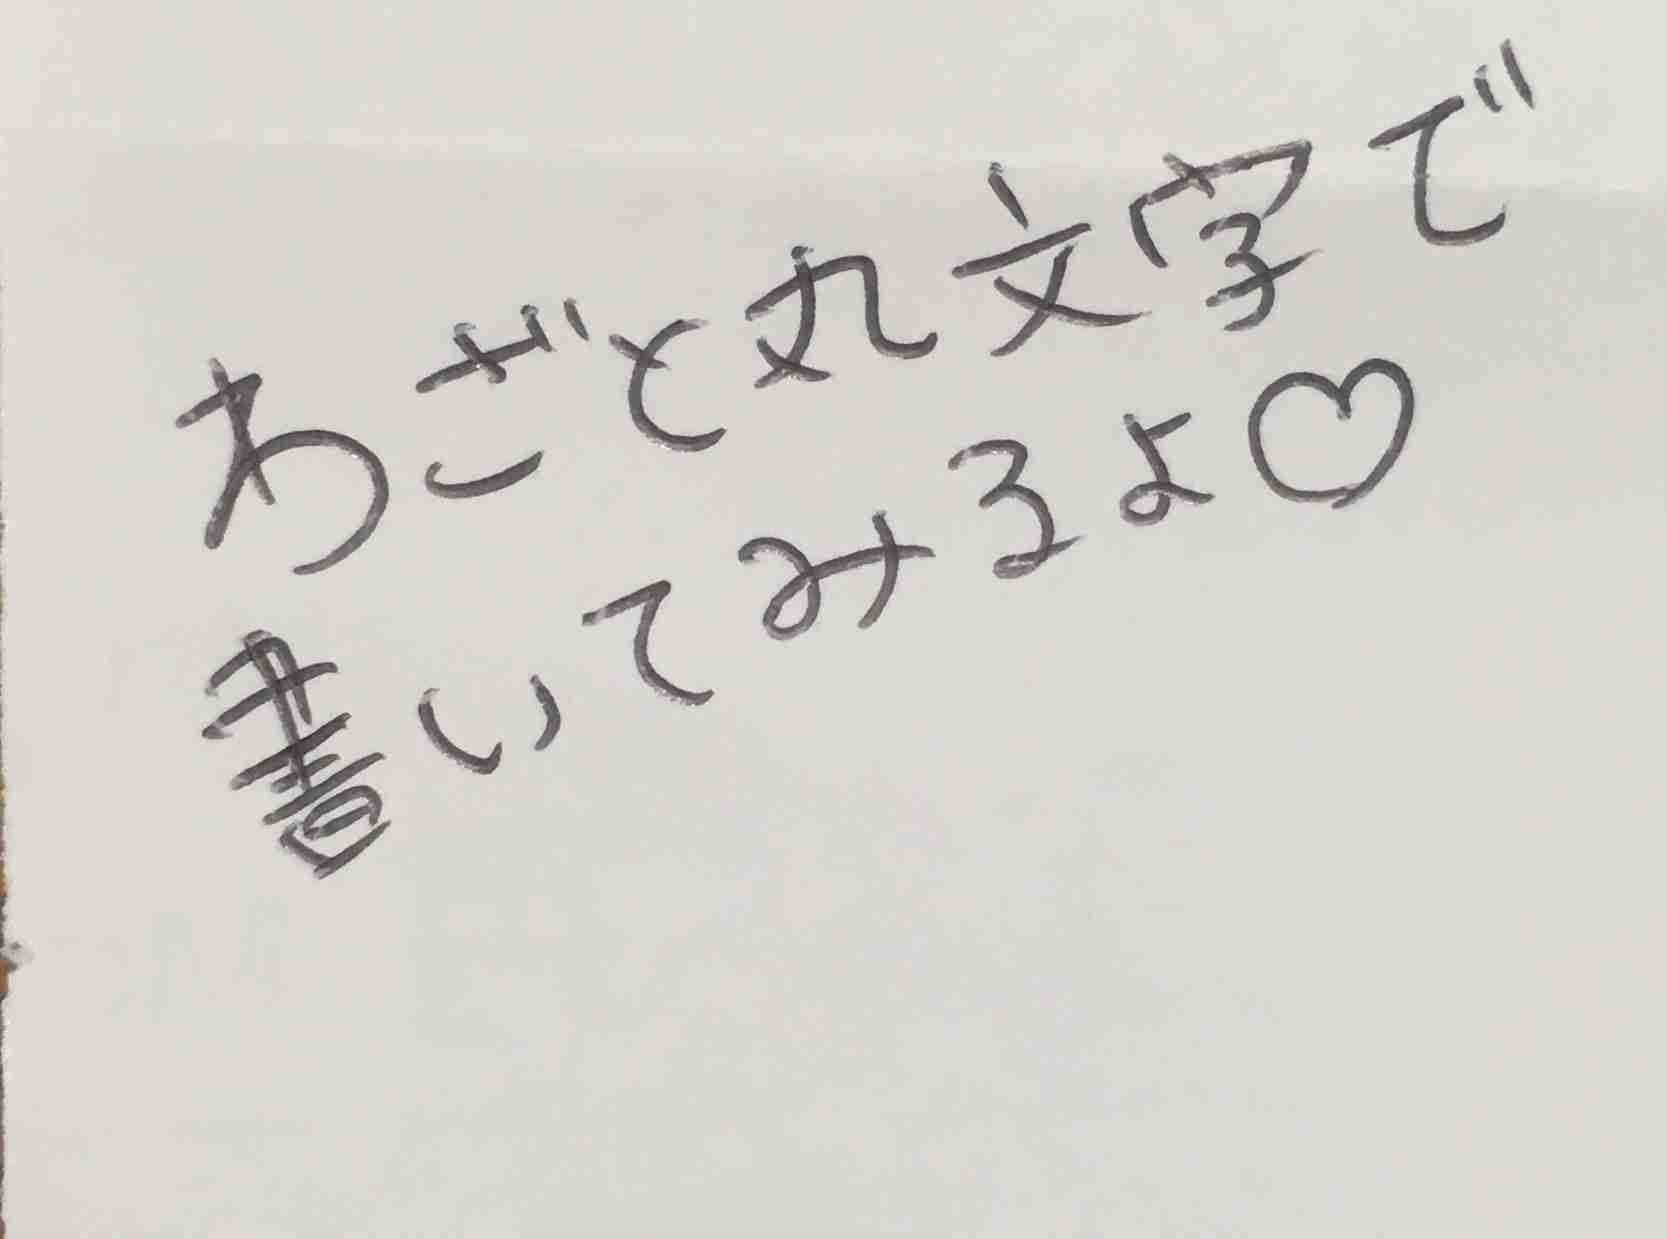 わざと丸文字で
書いてみるよ♡